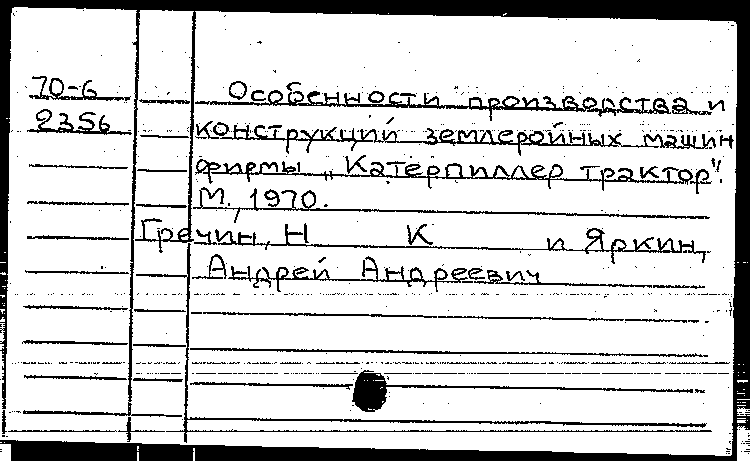 70-6 Особенности производства и
2356 конструкций землеройных машин
фирмы „Катерпиллер трактор".
М., 1970.
Гречин, Н К и Яркин,
Андрей Андреевич